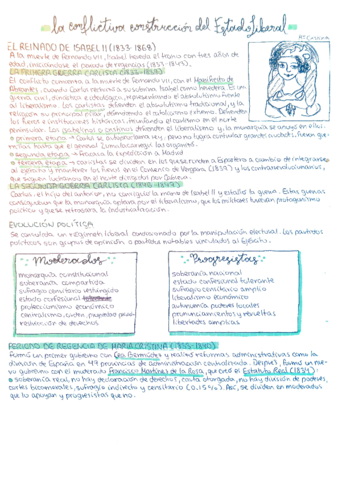 la conflictiva construcción del Estado liberal
EL REINADO DE ISABEL II (1833-1868)
Mª Cristina
A la muerte de Fernando VII, Isabel hereda el trono con tres años de
edad, iniciándose el período de regencias (1833-1843).
LA PRIMERA GUERRA CARLISTA (1833-1840)
El conflicto comienza a la muerte de Fernando VII, con el Manifiesto de
Abrantes, cuando Carlos rechaza a su sobrina Isabel como heredera. Es un
guerra civil, dinástica e ideológica, representando el absolutismo frente
al liberalismo. Los carlistas defienden el absolutismo tradicional y la
religión en primer pilar, defendiendo el catolicismo extremo. Defienden
los fueros e instituciones históricas, triunfando el carlismo en el norte
peninsular. Los isabelinos o cristinos defienden el liberalismo, y la monarquía se apoya en ellos.
primera etapa → Carlos se autoproclama rey, pero no logra controlar grandes núcleos. Fueron que-
rrillas hasta que el general Zumalacárregui las organizó.
segunda etapa → Fracasa la expedición a Madrid
tercera etapa → carlistas se dividen en los que se rinden a Espartero a cambio de integrarse
al ejército y mantener los fueros en el Convenio de Vergara (1839) y los contrarrevolucionarios,
que siguen luchando en el norte dirigidos por Cabrera.
LA SEGUNDA GUERRA CARLISTA (1846-1849)
Carlos, el hijo del anterior, no consiguió la mano de Isabel II y estalla la guerra. Estas guerras
consiguieron que la monarquía optara por el liberalismo, que los militares tuvieran protagonismo
político y que se retrasara la industrialización.
EVOLUCIÓN POLÍTICA
Se consolida un régimen liberal condicionado por la manipulación electoral. Los partidos
políticos son grupos de opinión o pactados notables vinculados al ejército.
Moderados
monarquía constitucional
soberanía compartida
sufragio censitario restringido
estado confesional
proteccionismo económico
centralismo, orden, propiedad privada
restricción de derechos
Progresistas
soberanía nacional
estado confesional tolerante
sufragio censitario amplio
liberalismo económico
autonomía poderes locales
pronunciamientos y revueltas
libertades amplias
PERIODO DE REGENCIA DE MARÍA CRISTINA (1833-1840)
Formó un primer gobierno con Cea Bermúdez y realizó reformas administrativas como la
división de España en 49 provincias de administración centralizada. Después, formó un nue-
vo gobierno con el moderado Francisco Martínez de la Rosa, que creó el Estatuto Real (1834):
soberanía real, no hay declaración de derechos, carta otorgada, no hay división de poderes,
cortes bicamerales, sufragio indirecto y censitario (0,15%). Así, se dividen en moderados
que lo apoyan y progresistas que no.